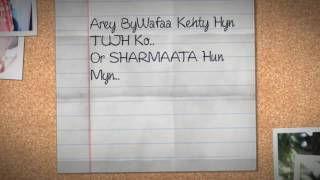 Arey ByWafaa Kehty Hyn
TUJH Ko..
Or SHARMAATA Hun
Myn..